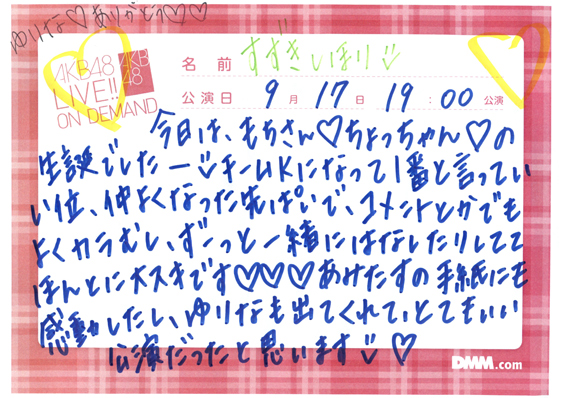 ゆりな♡ありがとう♡♡
AKB48
LIVE!!
ON DEMAND
AKB
48
名前 すずきしほり
公演日 9月17日 19:00公演
今日は、もちさん♡ちょっちゃん♡の
生誕でしたー チームKになって1番と言ってい
い位、仲よくなった先ぱいで、コメントとかでも
よくカラむし、ずーっと一緒にはなしたりしてて
ほんとに大スキです♡♡♡あみたすの手紙にも
感動したし、ゆりなも出てくれて、とてもいい
公演だったと思います♡
DMM.com